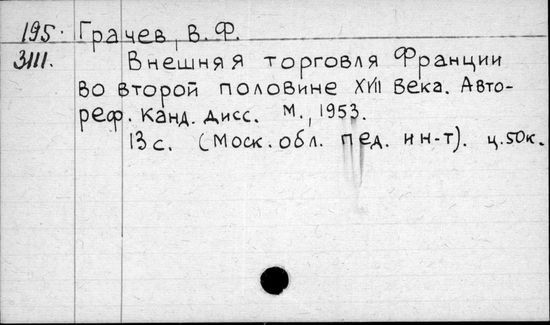 195. Грачев, В. Ф.
3111. Внешняя торговля Франции
во второй половине XVII века. Авто-
реф. Канд. дисс. М., 1953.
13 с. (Моск. обл. пед. ин-т). ц. 50к.